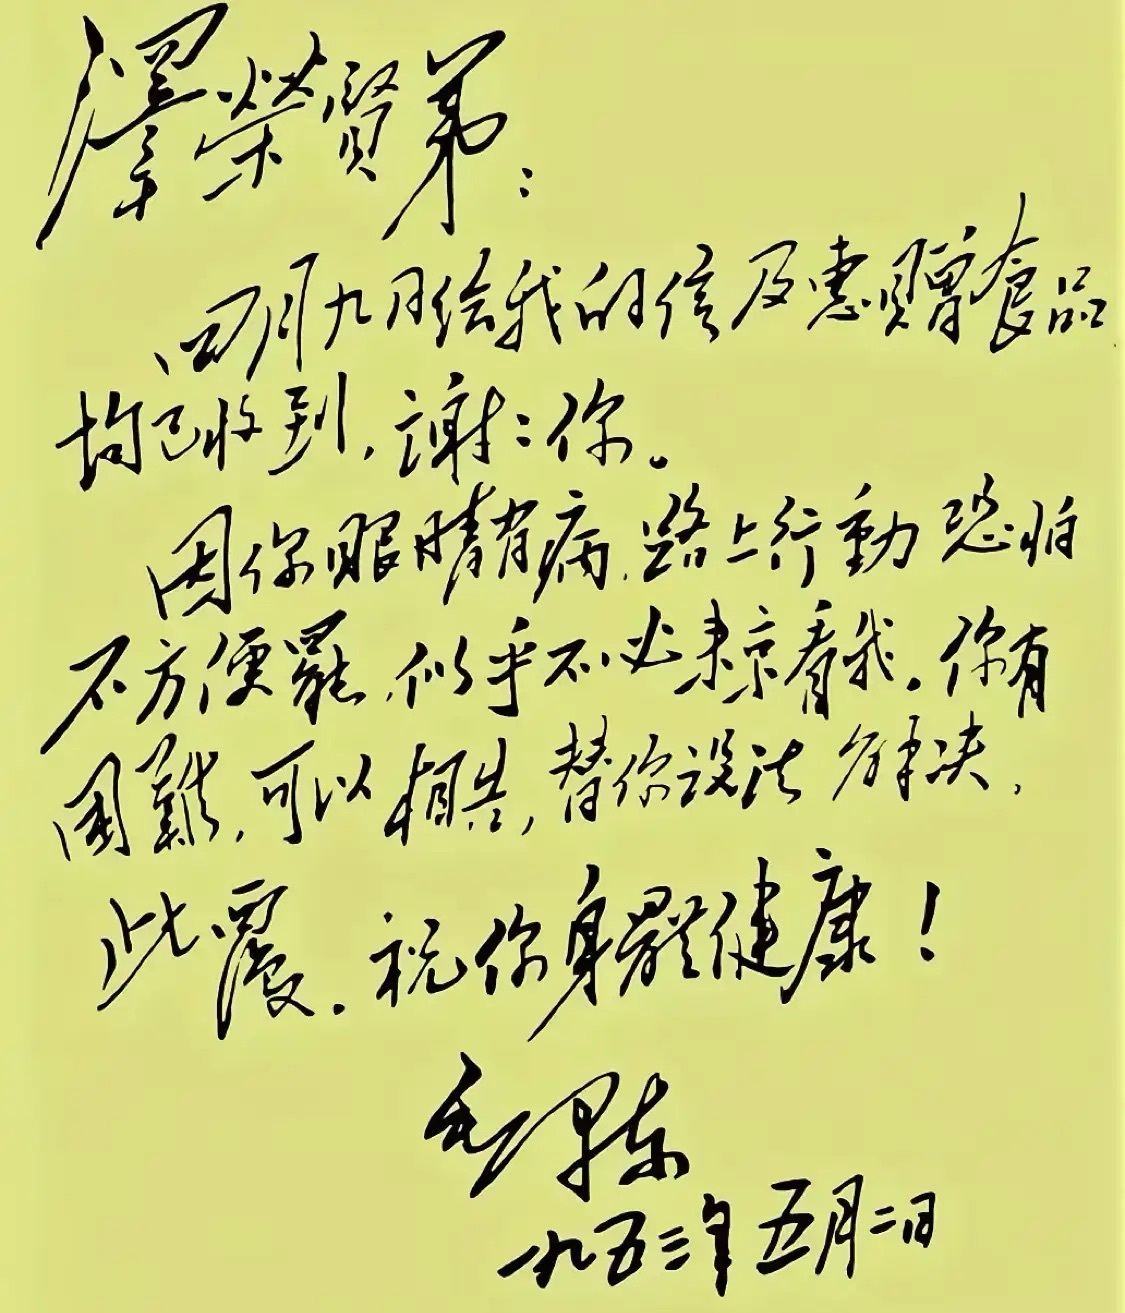 澤榮賢弟：
四月九日給我的信及惠贈食品
均已收到，謝〻你。
因你眼睛有病，路上行動恐怕
不方便罷，似乎不必來京看我。你有
困難，可以相告，替你設法解決。
此覆。祝你身體健康！
毛澤東
一九五三年五月二日